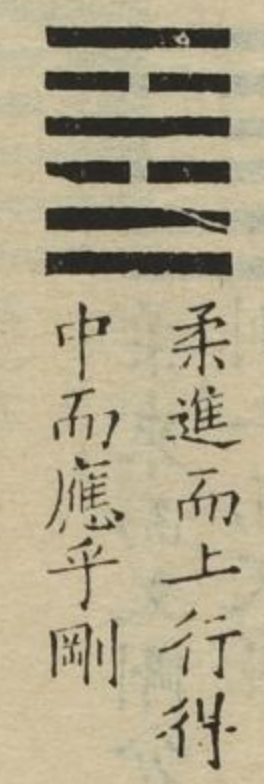 柔進而上行得
中而應乎剛